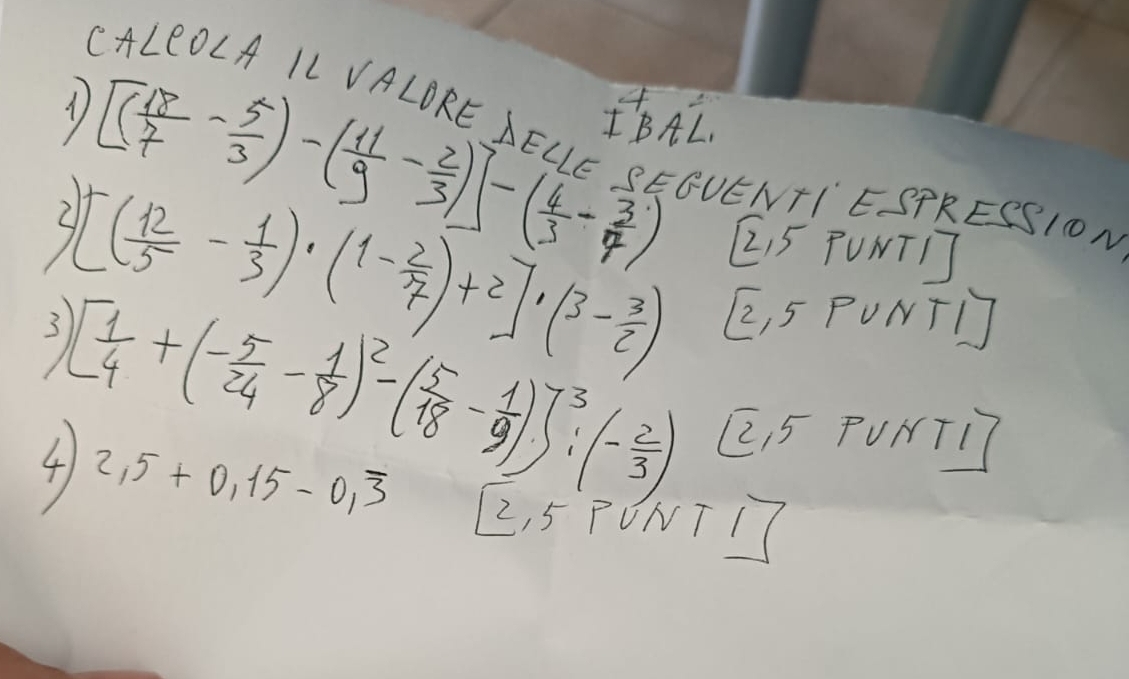 I BAL.
CALCOLA IL VALORE DELLE SEGUENTI ESPRESSION
1) [(18/7 - 5/3) - (11/9 - 2/3)] - (4/3 - 3/7) [2,5 PUNTI]
2) [(12/5 - 1/3) · (1 - 2/7) + 2] · (3 - 3/2) [2,5 PUNTI]
3) [1/4 + (-5/24 - 1/8)² - (5/18 - 1/9)]³ : (-2/3) [2,5 PUNTI]
4) 2,5 + 0,15 - 0,3̅ [2,5 PUNTI]